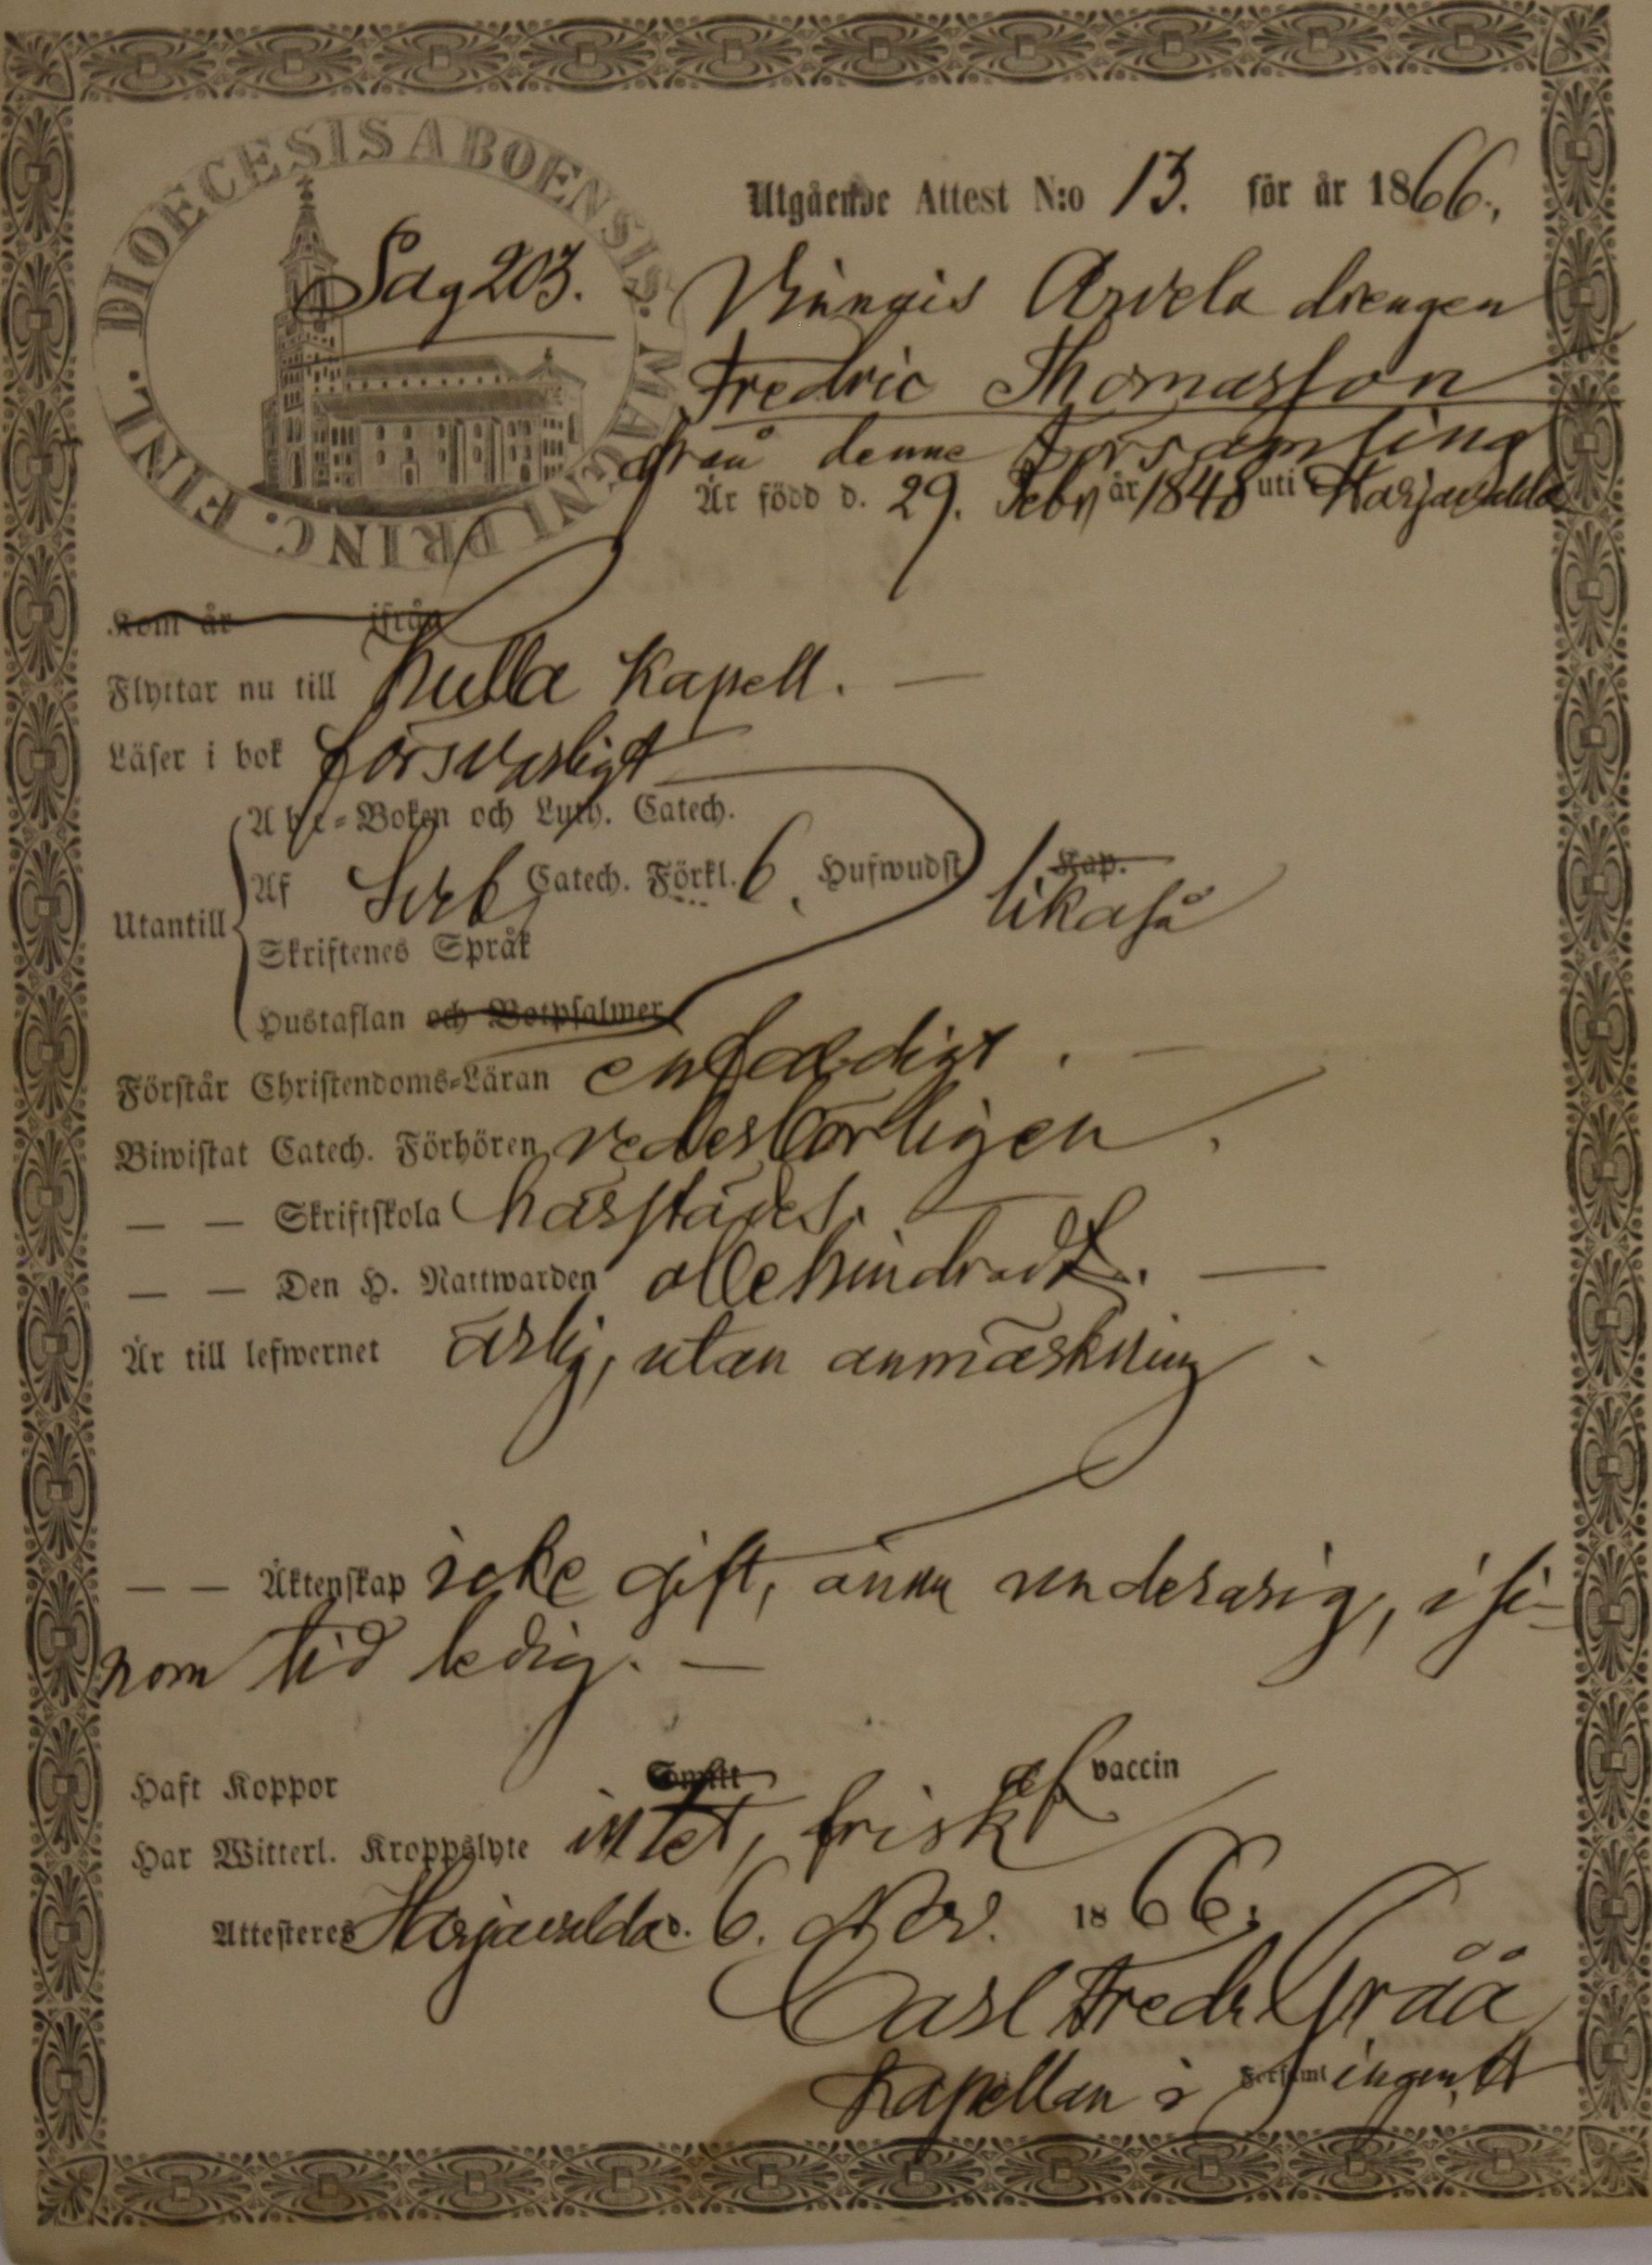 DIOECESIS ABOENSIS. MAGNI PRINC. FINL.
Utgående Attest N:o 13. för år 1866.
Pag 203.
Arvela drengen
Fredric Thomasson
från denne Församling
Är född d. 29. Febr år 1848 uti Harjavalda
Kom år ifrån
Flyttar nu till Kulla Kapell. —
Läser i bok försvarligt
Abc-Boken och Luth. Catech.
Utantill Af Sveb. Catech. Förkl. 6. Hufwudst Kap. likaså
Skriftenes Språk
Hustaflan och Botpsalmer
Förstår Christendoms-Läran enfaldigt. —
Biwistat Catech. Förhören vederbörligen.
— — Skriftskola härstädes.
— — Den H. Nattwarden obehindradt. —
Är till lefwernet ärlig, utan anmärkning.
— — Äktenskap icke gift, ännu underårig, i si-
nom tid ledig. —
Haft Koppor Småkk af vaccin
Har Witterl. Kroppslyte intet, frisk
Attesteres Harjavalda d. 6. Nov. 1866.
Carl Fredr. Gråå
Kapellan i Församlingen